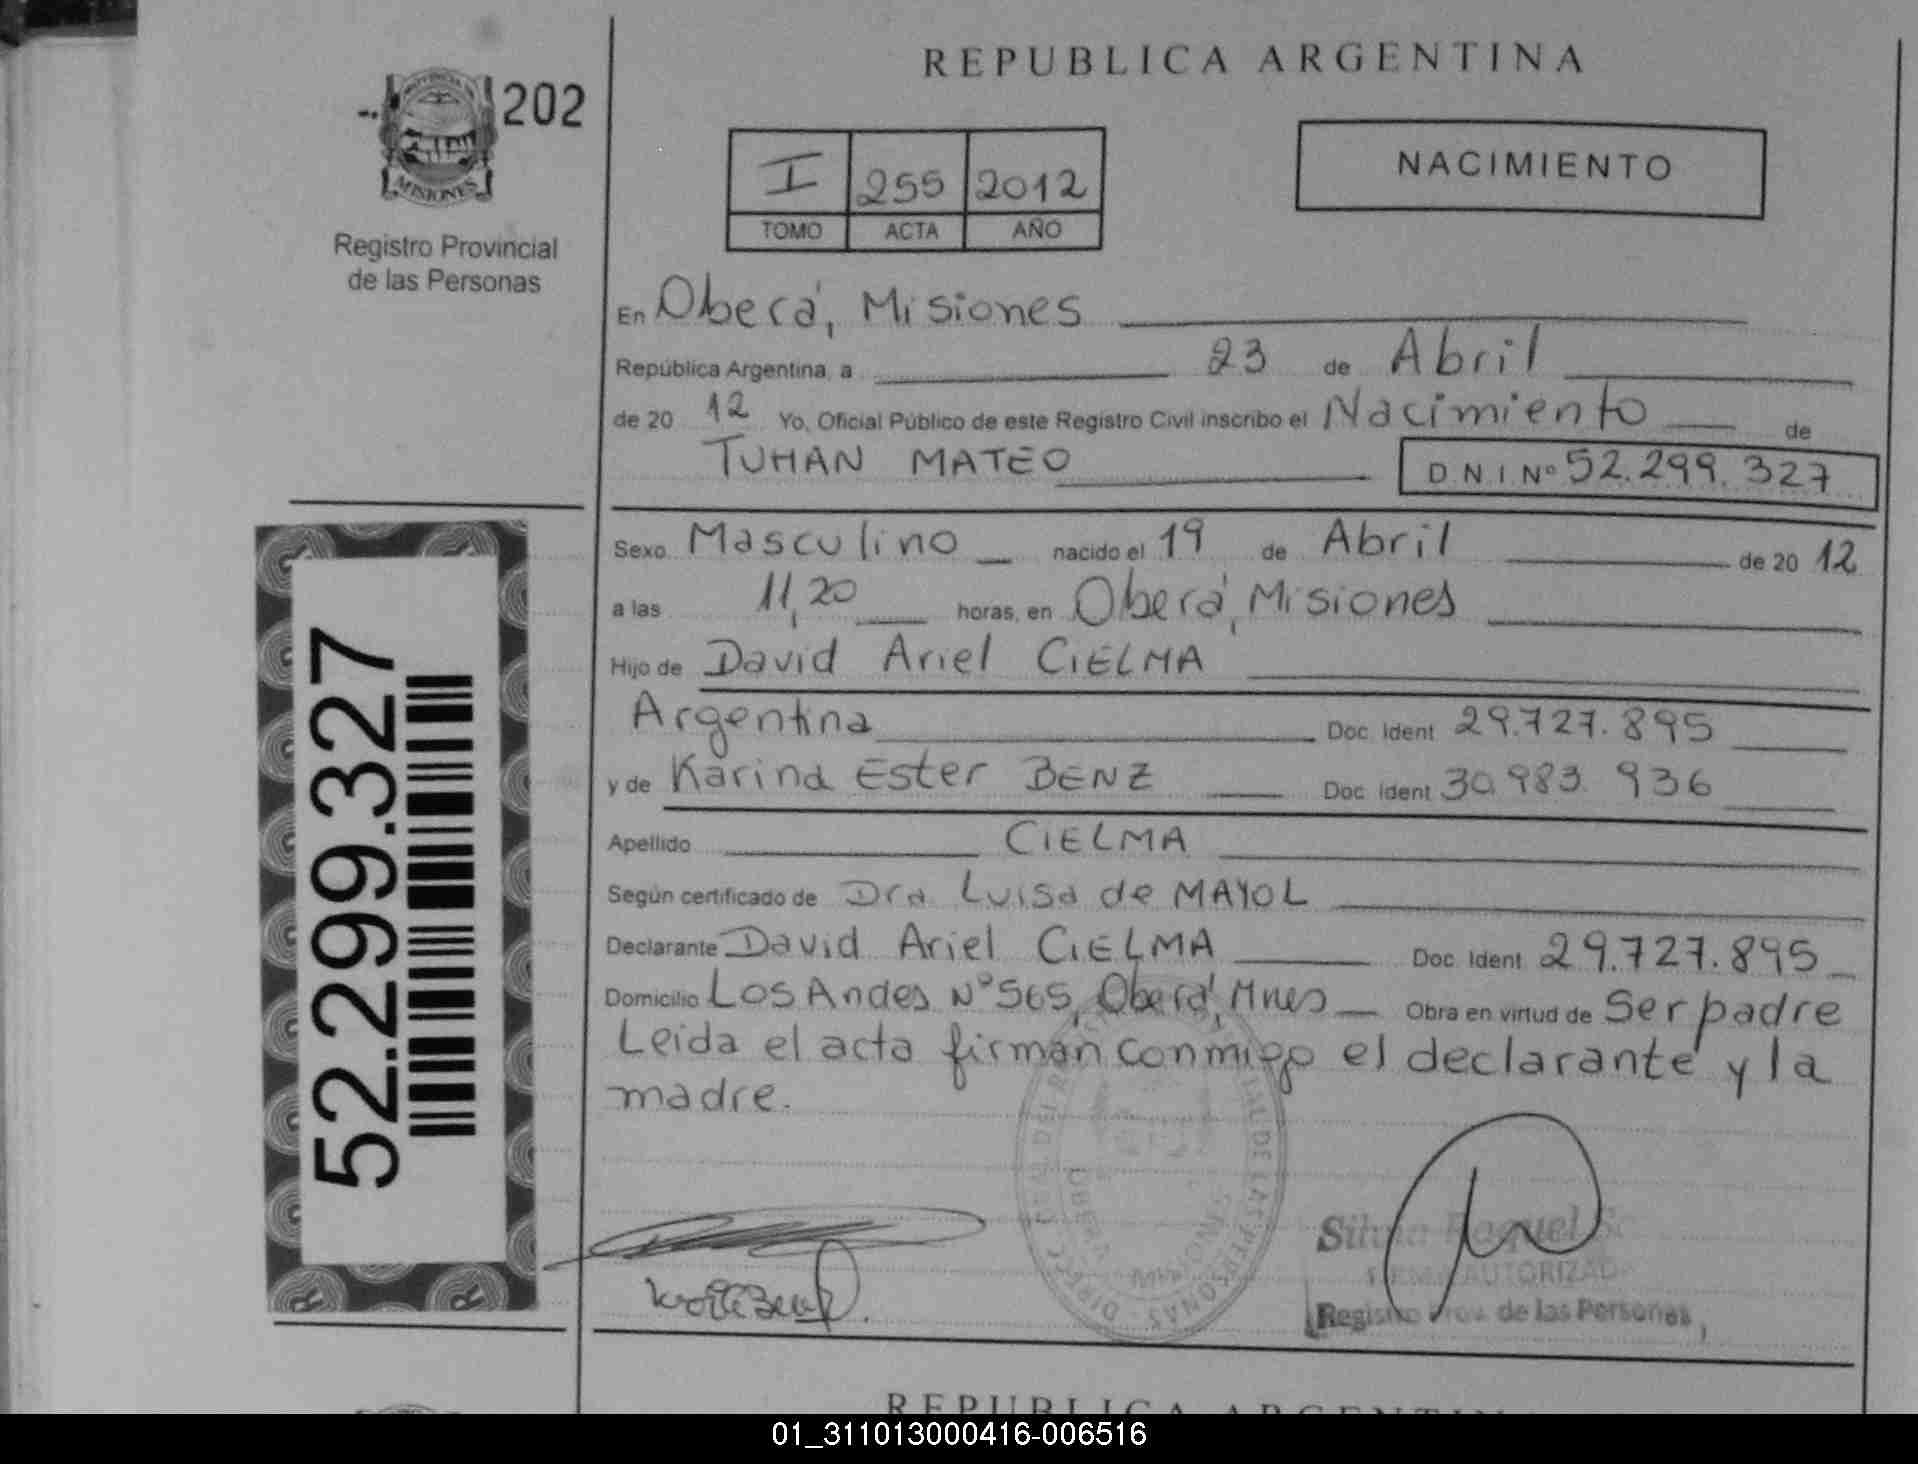 REPUBLICA ARGENTINA
202
PROVINCIA
MISIONES
Registro Provincial
de las Personas
NACIMIENTO
I 255 2012
TOMO ACTA AÑO
En Oberá, Misiones
República Argentina, a 23 de Abril
de 20 12 Yo, Oficial Público de este Registro Civil inscribo el Nacimiento de
TUHAN MATEO D.N.I. Nº 52.299.327
Sexo Masculino nacido el 19 de Abril de 20 12
a las 11,20 horas, en Oberá, Misiones
Hijo de David Ariel CIELMA
Argentina Doc. Ident 29.727.895
y de Karina Ester BENZ Doc. Ident 30.983.936
Apellido CIELMA
Según certificado de Dra. Luisa de MAYOL
Declarante David Ariel CIELMA Doc. Ident 29.727.895
Domicilio Los Andes Nº 565, Oberá, Mnes Obra en virtud de Ser padre
Leida el acta firman conmigo el declarante y la
madre.
52.299.327
Silvia Raquel
FIRMA AUTORIZAD
Registro Prov. de las Personas
REPUBLICA ARGENTINA
01_311013000416-006516